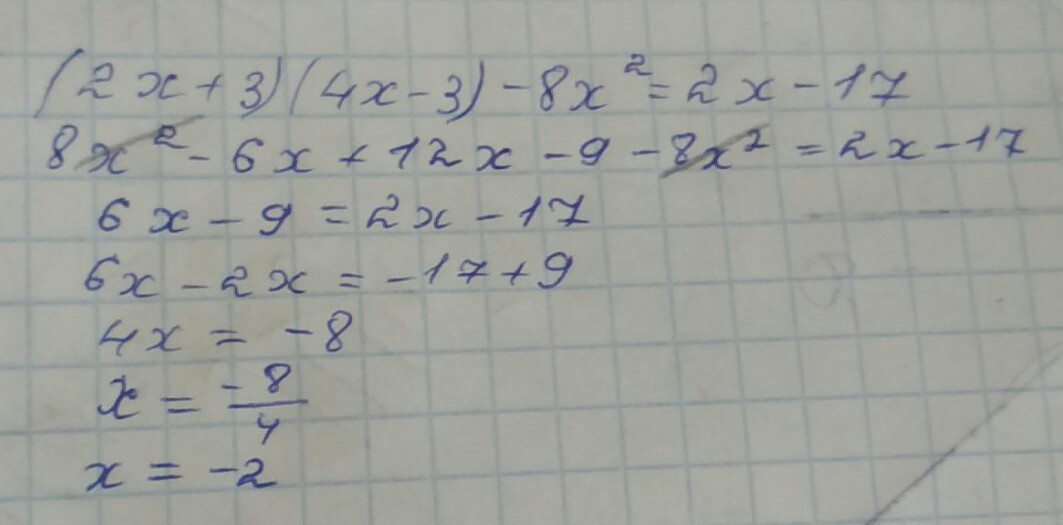 (2x+3)(4x-3)-8x²=2x-17
8x²-6x+12x-9-8x²=2x-17
6x-9=2x-17
6x-2x=-17+9
4x=-8
x=-8/4
x=-2